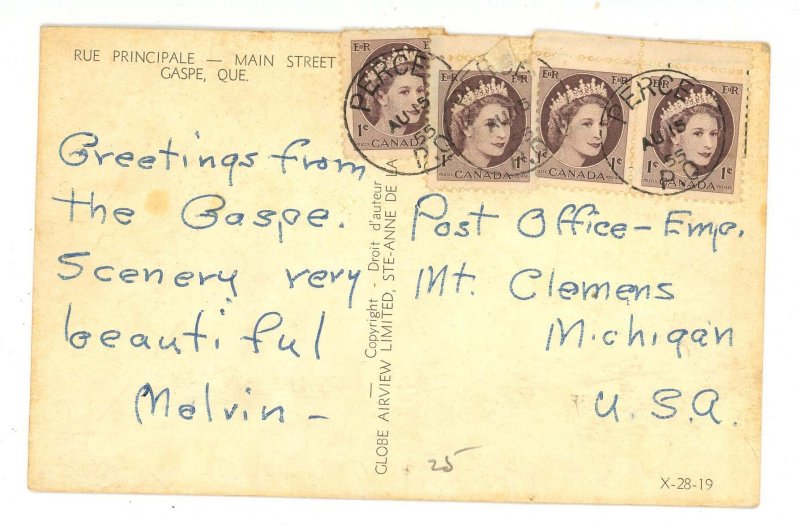 RUE PRINCIPALE — MAIN STREET
GASPE, QUE.
Greetings from
the Gaspe.
Scenery very
beautiful
Melvin —
Copyright - Droit d'auteur
GLOBE AIRVIEW LIMITED, STE-ANNE DE LA
E II R
1¢
CANADA
E II R
1¢
CANADA
E II R
1¢
CANADA
E II R
1¢ 1¢
CANADA
PERCE
AU 15
55
P.Q.
PERCE
AU 15
55
P.Q.
Post Office – Emp.
Mt. Clemens
Michigan
U.S.A.
25
X-28-19